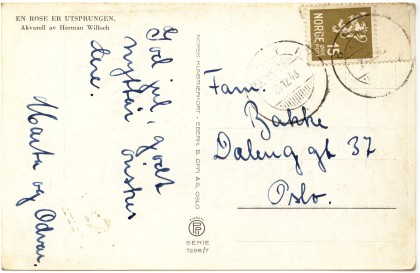 EN ROSE ER UTSPRUNGEN.
Akvarell av Herman Willoch
God jul, godt
nyttår ønskes
dere.
Marta og Odvar.
NORSK KUNSTNERKORT - EBERH. B. OPPI A.S, OSLO
SERIE
7286/7
NORGE
15
12.43
Fam.
Bakke
Daleng gt 37
Oslo.